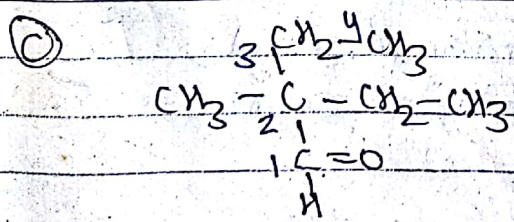 C
3 CH2 4 CH3
CH3 - C - CH2 - CH3
2
1 C = O
H